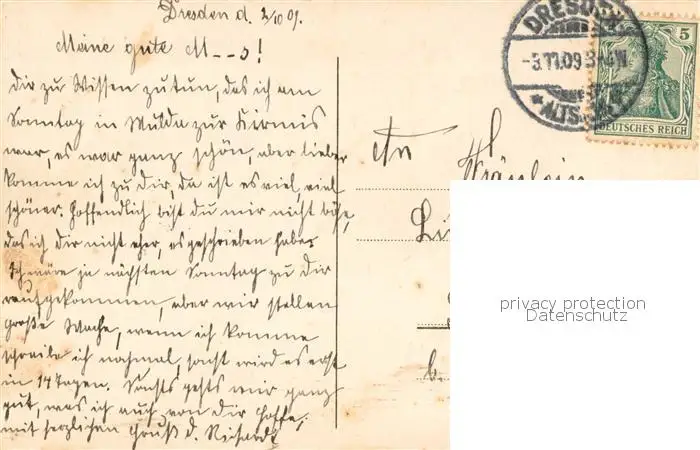 Dresden d. 2/10 09.
Meine gute M---s!
dir zu Wissen zutun, das ich am
Sonntag in Mulda zur Kirmis
war, es war ganz schön, aber lieber
komme ich zu dir, da ist es viel, viel
schöner. Hoffendlich bist du mir nicht böse,
das ich dir nicht eher, es geschrieben habe.
Ich wäre ja nächsten Sonntag zu dir
raufgekommen, aber wir stellen
große Wache, wenn ich komme
schreibe ich nochmal, sonst wird es erst
in 14 Tagen. Sonst gehts mir ganz
gut, was ich auch von dir hoffe,
mit herzlichen Gruß d. Richard
An
Fräulein
Li
b.
DRESDEN
-3.11.09 3-4N
* ALTST.
5
DEUTSCHES REICH
privacy protection
Datenschutz